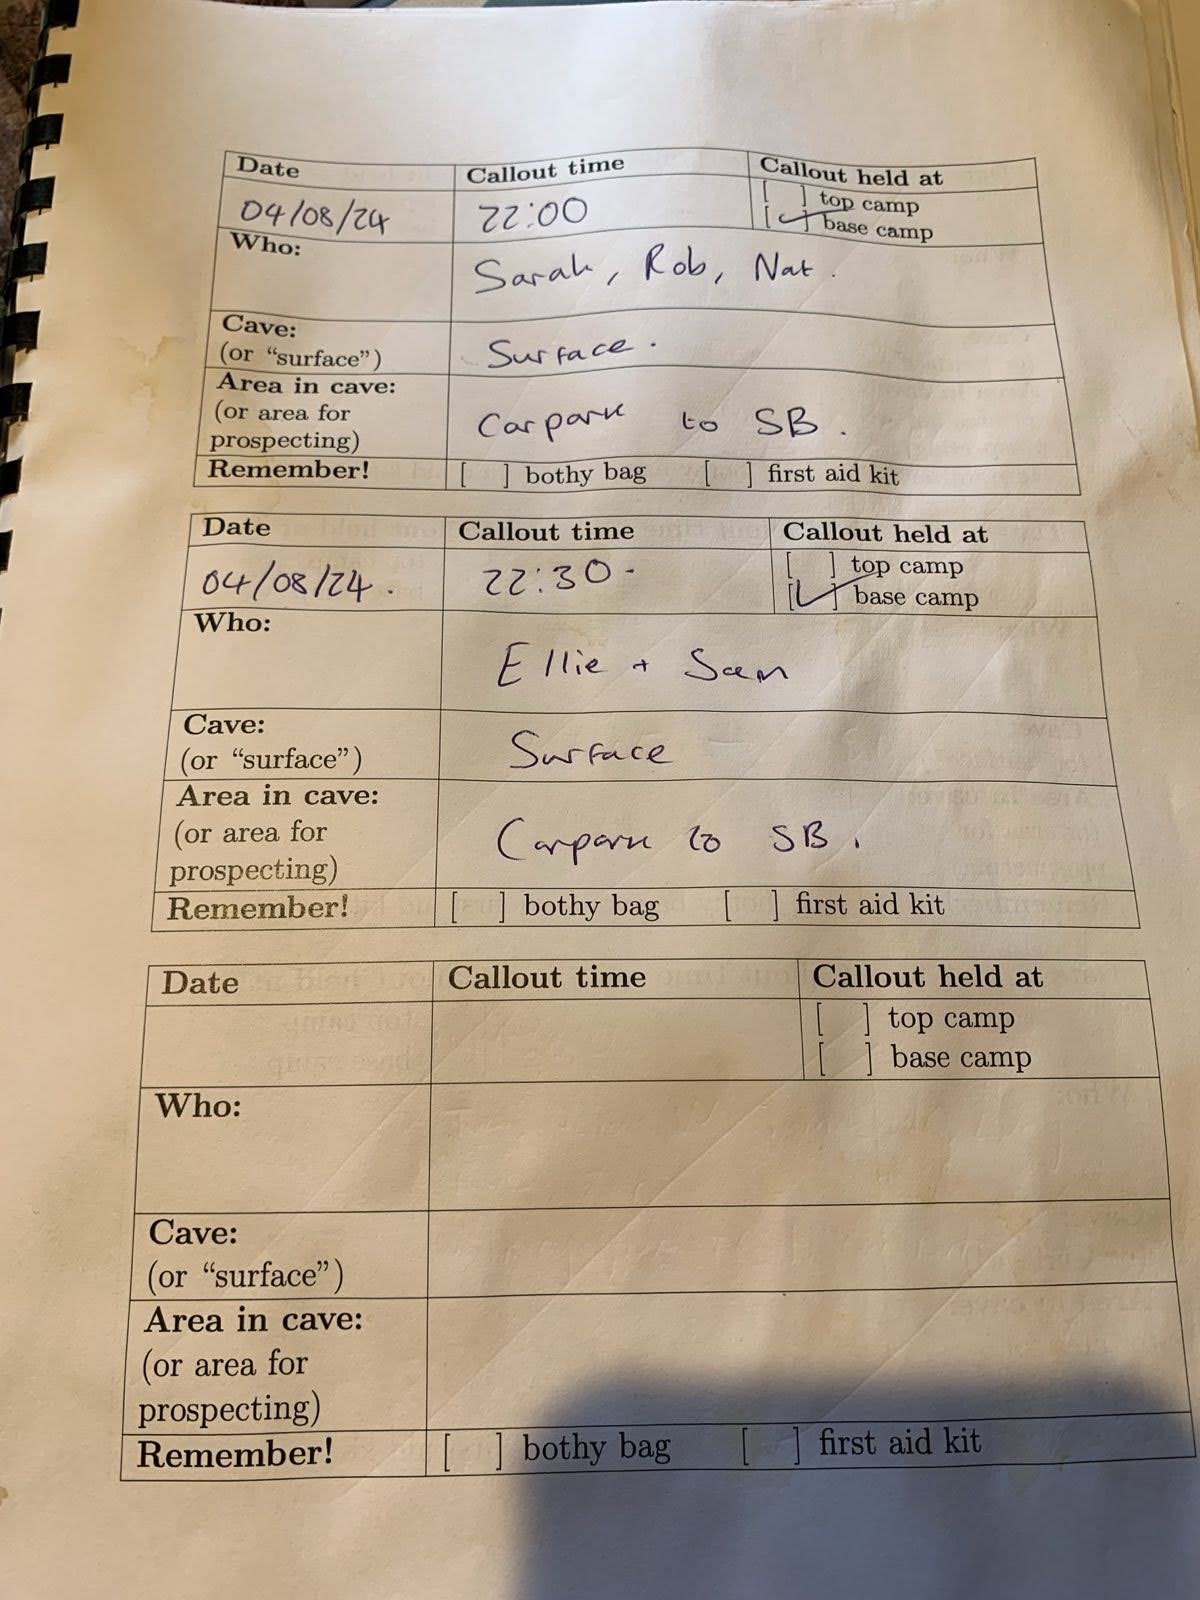 Date Callout time Callout held at
04/08/24 22:00 [ ] top camp
[✓] base camp
Who: Sarah, Rob, Nat.
Cave:
(or “surface”) Surface.
Area in cave:
(or area for Carpark to SB.
prospecting)
Remember! [ ] bothy bag [ ] first aid kit
Date Callout time Callout held at
04/08/24. 22:30. [ ] top camp
[✓] base camp
Who:
Ellie + Sam
Cave:
(or “surface”) Surface
Area in cave:
(or area for Carpark to SB.
prospecting)
Remember! [ ] bothy bag [ ] first aid kit
Date Callout time Callout held at
[ ] top camp
[ ] base camp
Who:
Cave:
(or “surface”)
Area in cave:
(or area for
prospecting)
Remember! [ ] bothy bag [ ] first aid kit